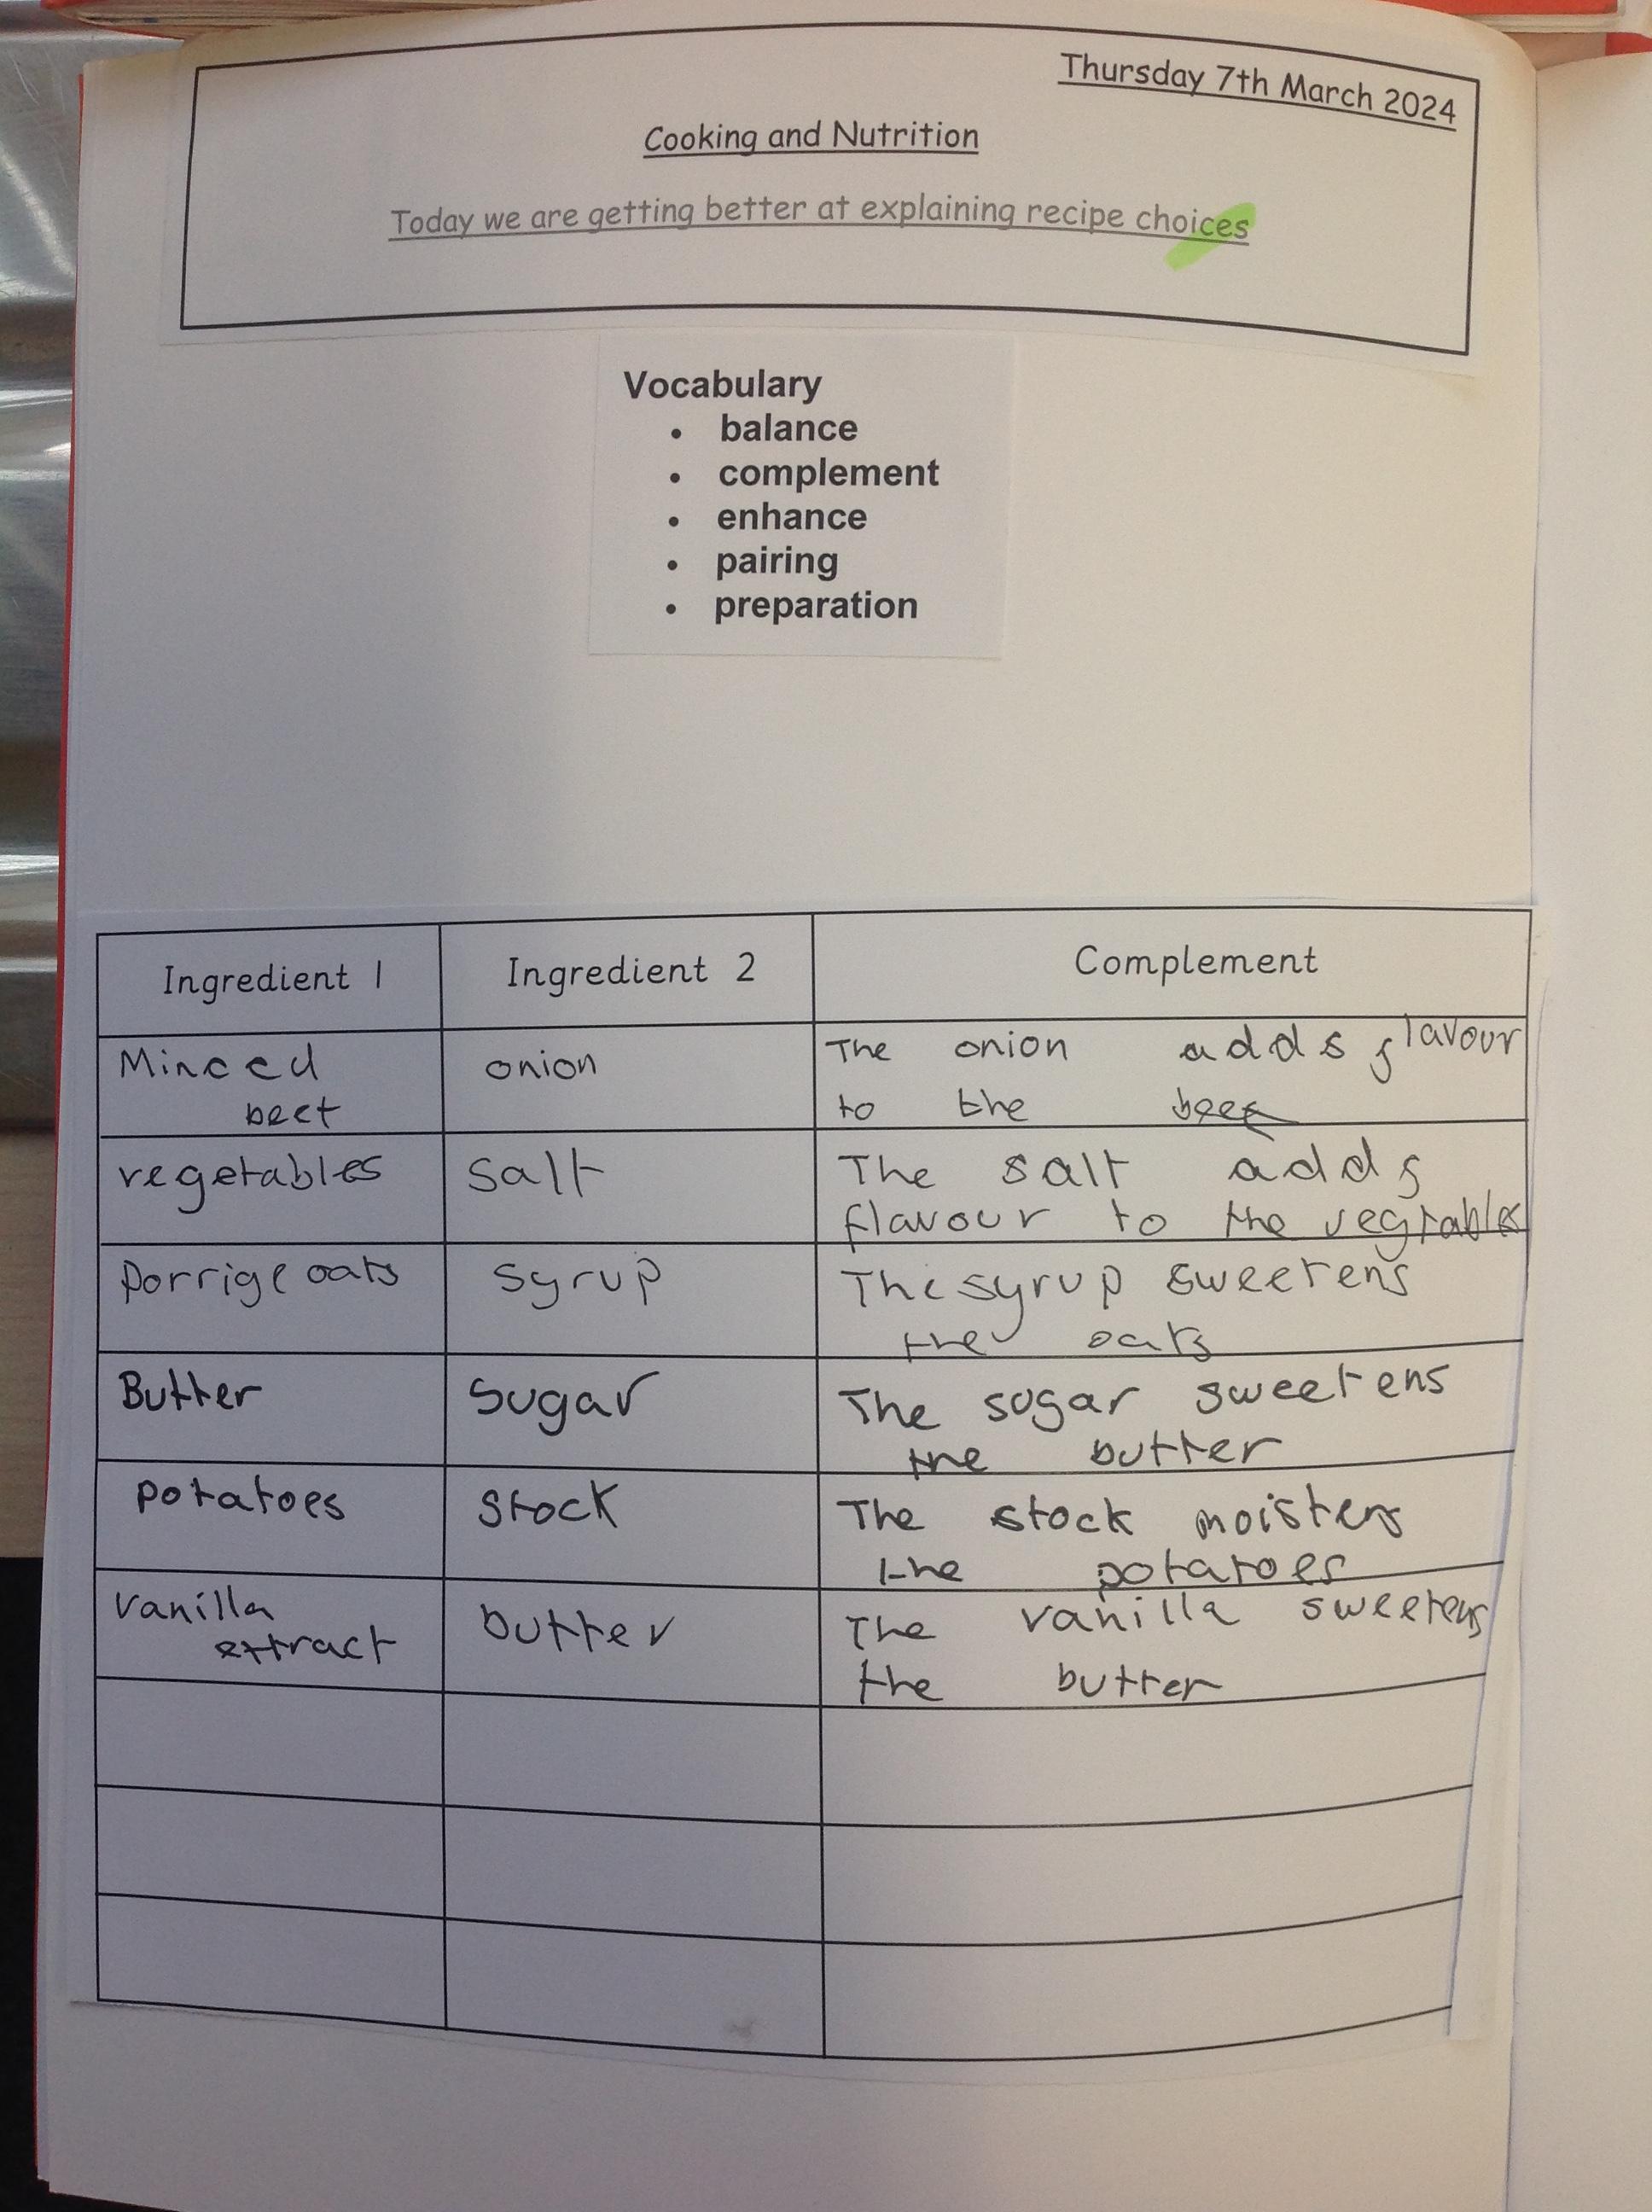 Thursday 7th March 2024
Cooking and Nutrition
Today we are getting better at explaining recipe choices
Vocabulary
• balance
• complement
• enhance
• pairing
• preparation
Ingredient 1 Ingredient 2 Complement
Minced
beef
onion
The onion adds flavour
to the beef
vegetables
Salt
The salt adds
flavour to the vegtables
Porrige oats
Syrup
The syrup sweetens
the oats
Butter
Sugar
The sugar sweetens
the butter
potatoes
Stock
The stock moistens
the potatoes
Vanilla
extract
butter
The vanilla sweetens
the butter